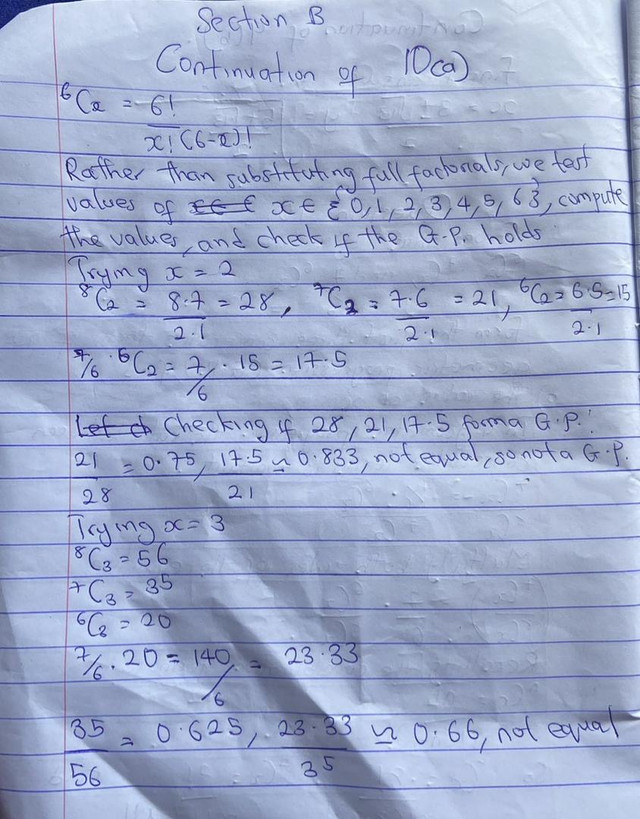 Section B
Continuation of 10(a)
⁶Cx = 6!
x!(6-x)!
Rather than substituting full factorials, we test
values of x ∈ {0,1,2,3,4,5,6}, compute
the values, and check if the G.P. holds.
Trying x = 2
⁸C₂ = 8·7 = 28, ⁷C₂ = 7·6 = 21, ⁶C₂ = 6·5 = 15
2·1 2·1 2·1
7/6 · ⁶C₂ = 7/6 · 15 = 17.5
Checking if 28, 21, 17.5 form a G.P.:
21/28 = 0.75, 17.5/21 ≃ 0.833, not equal, so not a G.P.
Trying x = 3
⁸C₃ = 56
⁷C₃ = 35
⁶C₃ = 20
7/6 · 20 = 140/6 = 23.33
35/56 = 0.625, 23.33/35 ≃ 0.66, not equal